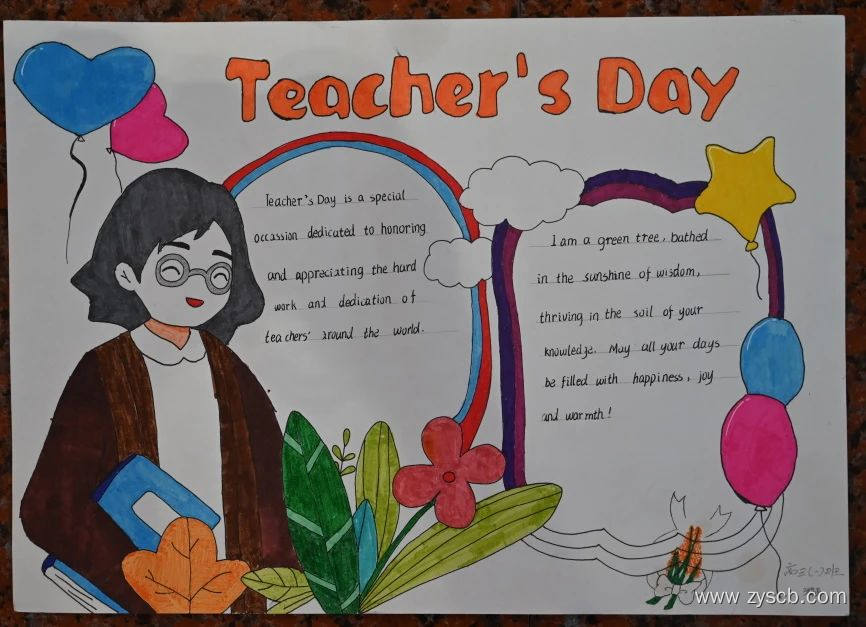 Teacher's Day
Teacher's Day is a special
occassion dedicated to honoring
and appreciating the hard
work and dedication of
teachers' around the world.
I am a green tree, bathed
in the sunshine of wisdom,
thriving in the soil of your
knowledge. May all your days
be filled with happiness, joy
and warmth!
高三(一)班
www.zyscb.com